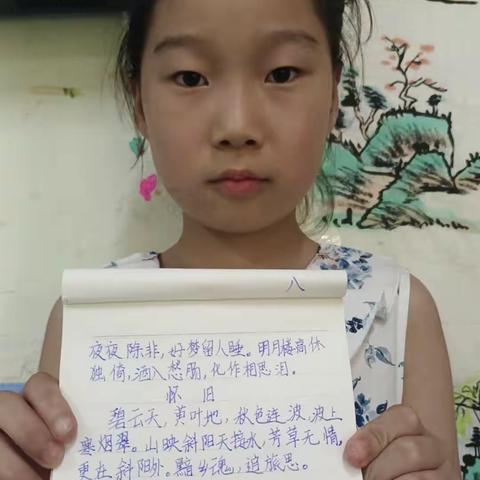 八
夜夜除非，好梦留人睡。明月楼高休
独倚，洒入愁肠，化作相思泪。
怀旧
碧云天，黄叶地，秋色连波，波上
寒烟翠。山映斜阳天接水，芳草无情，
更在斜阳外。黯乡魂，追旅思。